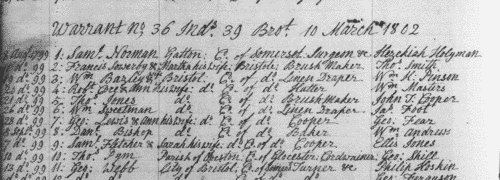 Warrant No 36 Inds. 39 Brot. 10 March 1802
1: Saml. Norman Yatton: Co. of Somerset Surgeon & Hezekiah Holyman
2: Francis & Martha his wife: Bristol: Brush Maker Thos. Smith
do. 99 3: Wm Bazley & Bristol: Co. of do. Linen Draper Wm K. Pinson
do. 99 4: Robt. & Ann his wife: do. Co. of do. Hatter Wm Masters
do. 99 5: Thos. Jones do. Co. of do. Brush Maker John T. Cooper
do. 99 6: Wm do. Co. of do. Linen Draper Jas. Foot
do. 99 7: Geo: Lewis & Ann his wife: do. Co. of do. Cooper Geo: Fear
99 8: Danl. Bishop do. Co. of do. Baker Wm Andrews
7 do. 99 9: Saml. Fletcher & Sarah his wife: do. Co. of do. Cooper Ellis Jones
10 do. 99 10: Thos. Pym Parish of Co. of Glocester Cordwainer Geo: Shill
13 do. 99 11: Geo: Webb City of Bristol, Co. of Turner &c Philip Hoskin
Geo: Ferguson